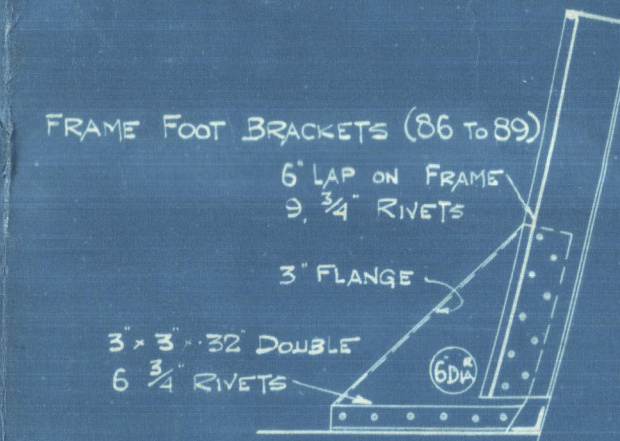 FRAME FOOT BRACKETS (86 TO 89)
6" LAP ON FRAME
9, 3/4" RIVETS
3" FLANGE
3" × 3" × .32" DOUBLE
6 3/4" RIVETS
6" DIAR